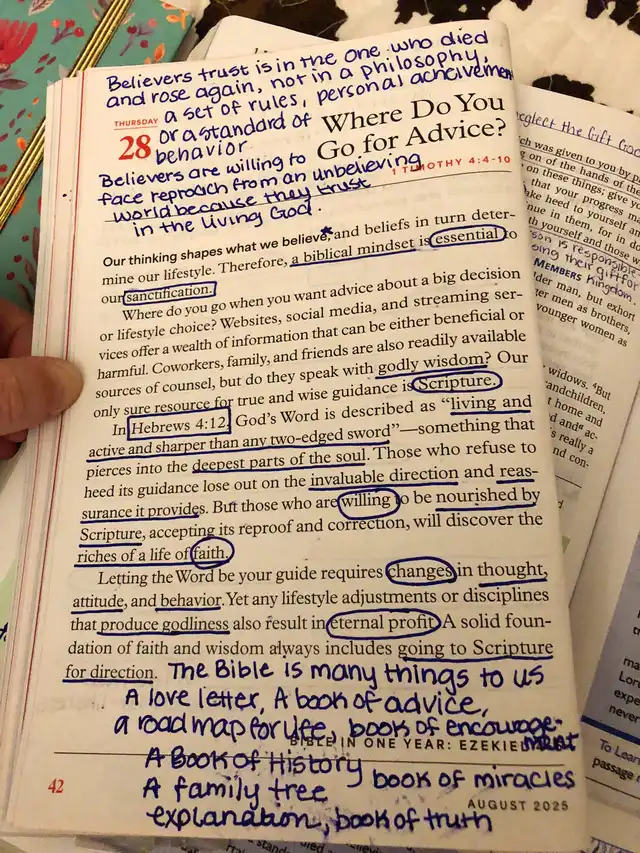 Believers trust is in the one who died
and rose again, not in a philosophy,
a set of rules, personal acheivement
or a standard of
behavior
THURSDAY
28
Where Do You
Go for Advice?
1 TIMOTHY 4:4-10
Believers are willing to
face reproach from an unbelieving
world because they trust
in the living God.
Our thinking shapes what we believe, and beliefs in turn deter-
mine our lifestyle. Therefore, a biblical mindset is essential to
our sanctification.
Where do you go when you want advice about a big decision
or lifestyle choice? Websites, social media, and streaming ser-
vices offer a wealth of information that can be either beneficial or
harmful. Coworkers, family, and friends are also readily available
sources of counsel, but do they speak with godly wisdom? Our
only sure resource for true and wise guidance is Scripture.
In Hebrews 4:12, God's Word is described as "living and
active and sharper than any two-edged sword"—something that
pierces into the deepest parts of the soul. Those who refuse to
heed its guidance lose out on the invaluable direction and reas-
surance it provides. But those who are willing to be nourished by
Scripture, accepting its reproof and correction, will discover the
riches of a life of faith.
Letting the Word be your guide requires changes in thought,
attitude, and behavior. Yet any lifestyle adjustments or disciplines
that produce godliness also result in eternal profit. A solid foun-
dation of faith and wisdom always includes going to Scripture
for direction.
The Bible is many things to us
A love letter, A book of advice,
a road map for life, book of encourage-
ment
BIBLE IN ONE YEAR: EZEKIEL
A Book of History
book of miracles
A family tree
explanation, book of truth
42
AUGUST 2025
neglect the Gift God
ich was given to you by p
g on of the hands of the
on these things; give yo
that your progress m
ake heed to yourself an
nue in them, for in do
th yourself and those w
son is responsible
oing their gift for
Kingdom
MEMBERS
lder man, but exhort
ter men as brothers,
younger women as
widows. 4But
andchildren,
t home and
ac-
s really a
nd con-
ma
Lor
expe
never
To Learn
passage